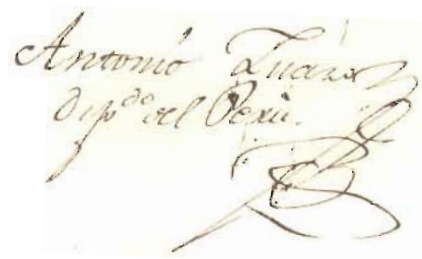 Antonio Zuazo
Dip.do del Perù.